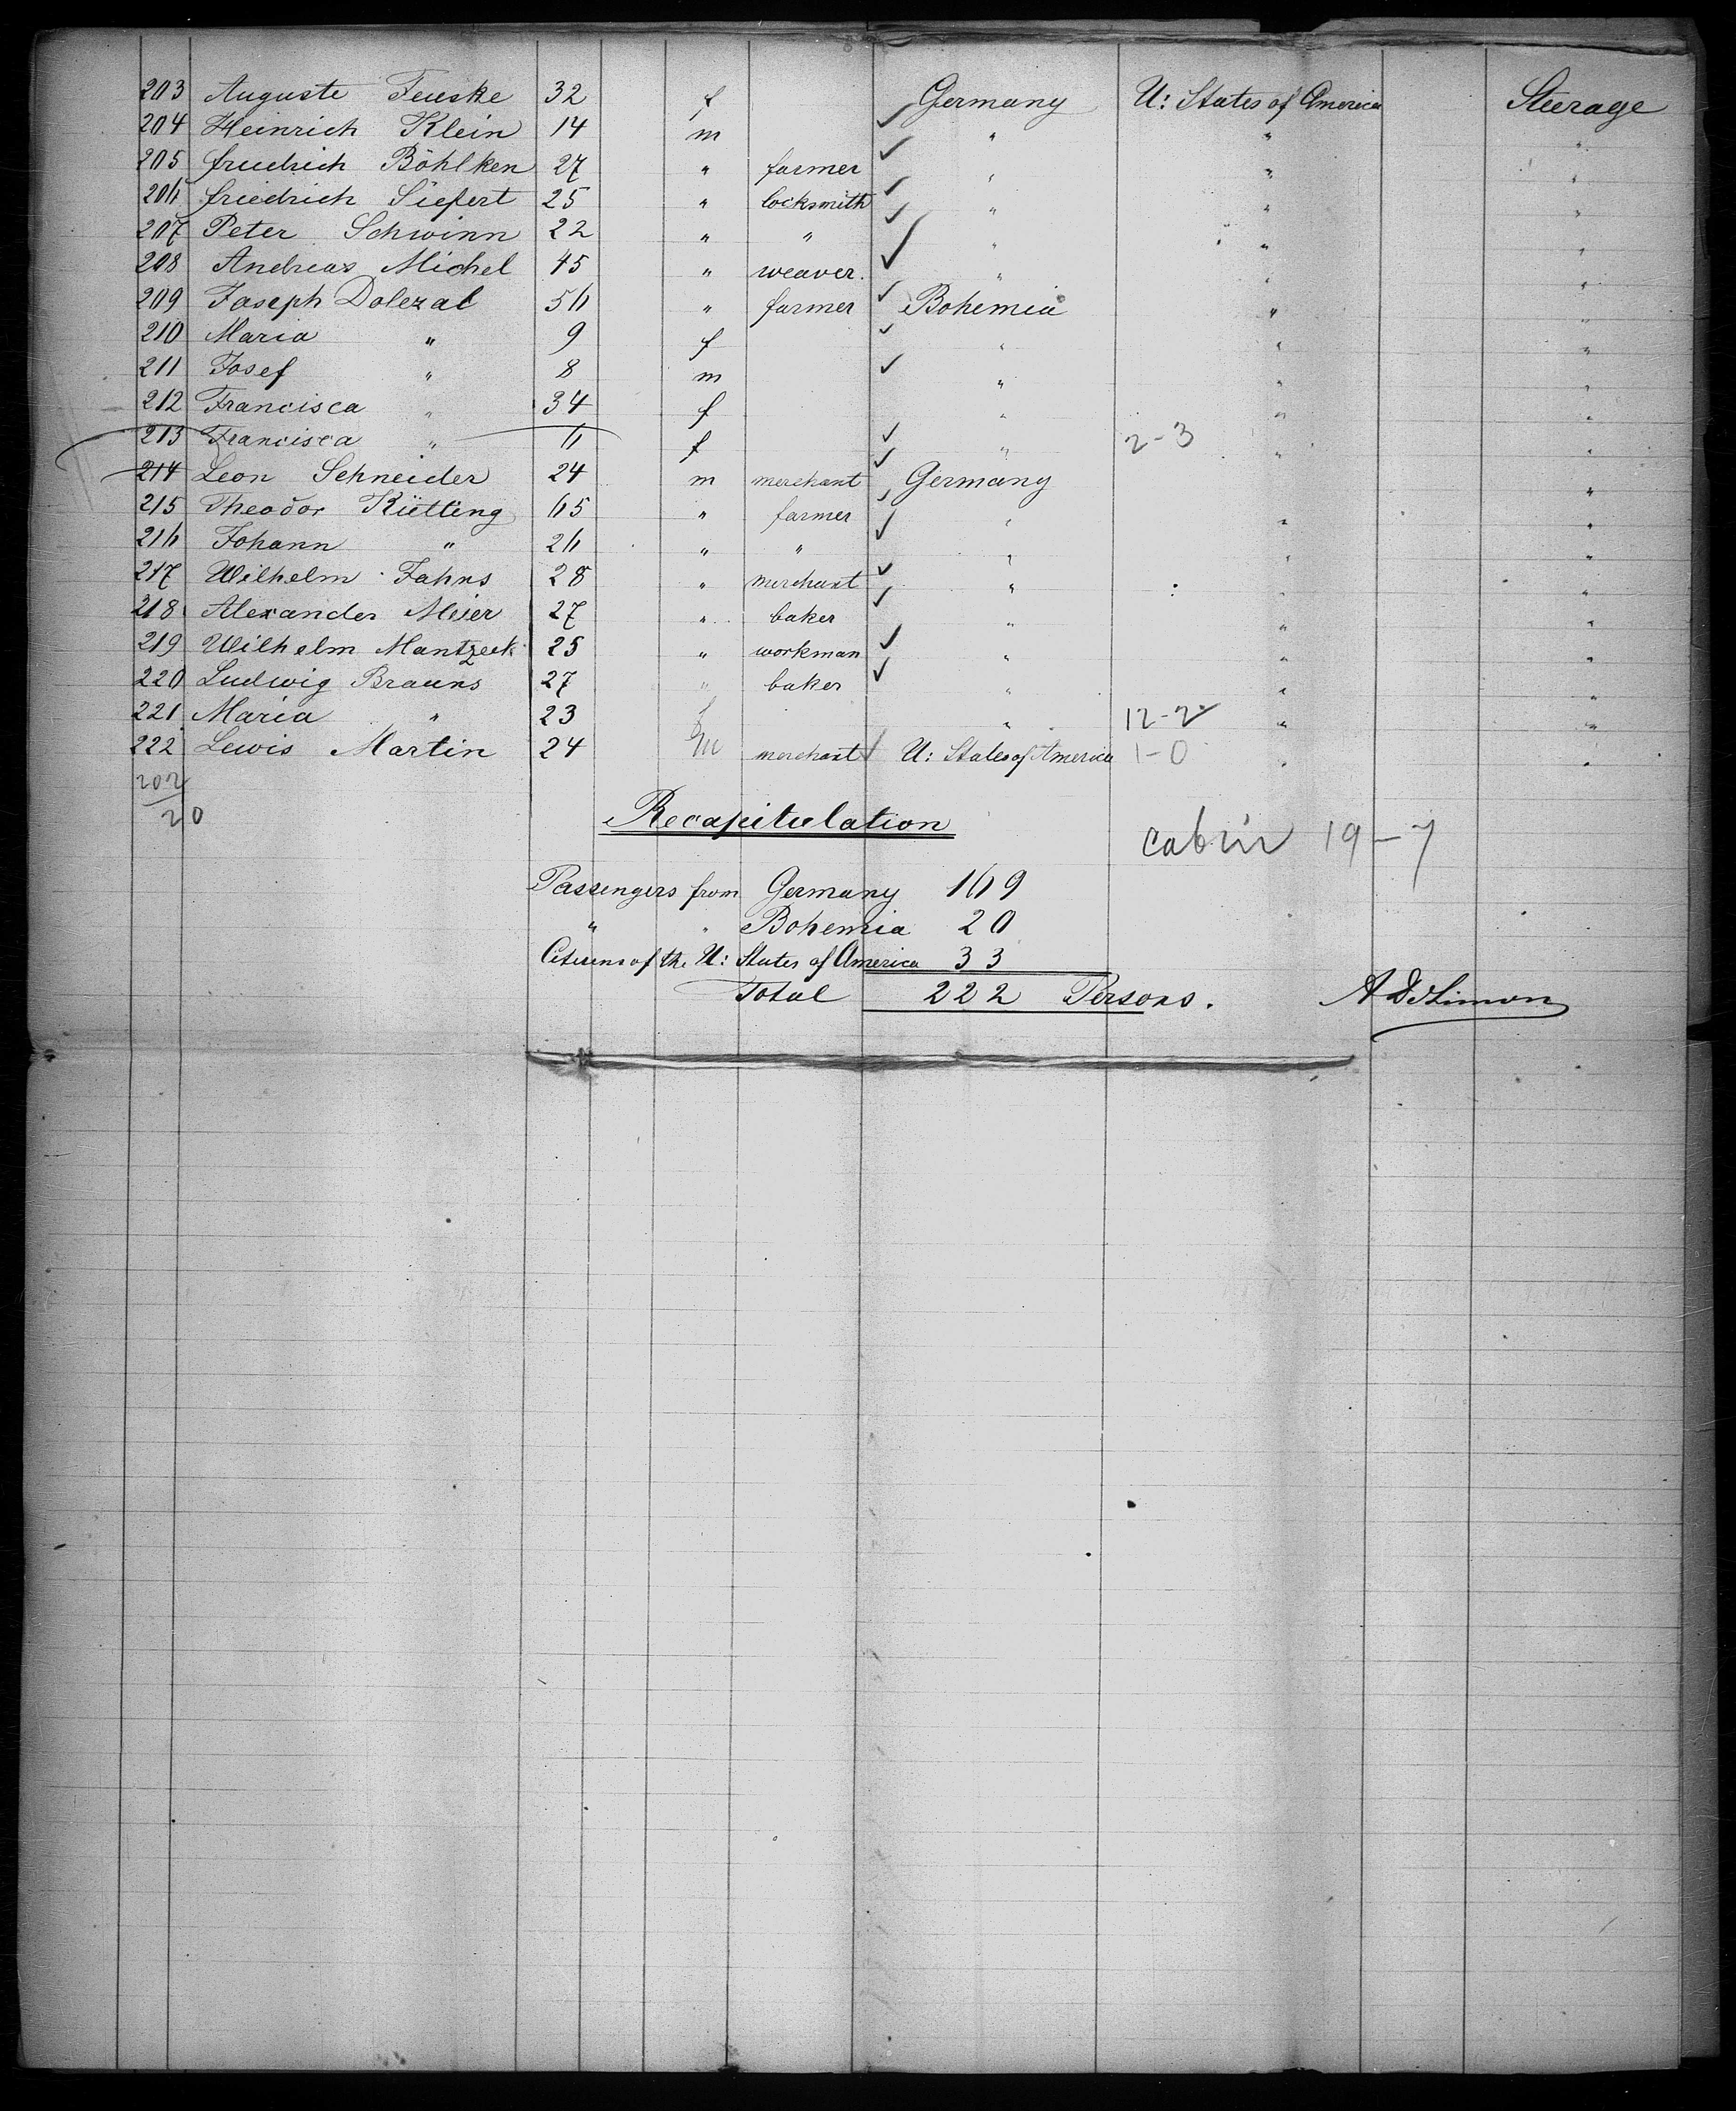 203 Auguste Feuske 32 f Germany U: States of America Steerage
204 Heinrich Klein 14 m " " "
205 friedrich Böhlken 27 " farmer " " "
206 friedrich Siefert 25 " locksmith " " "
207 Peter Schwinn 22 " " " " "
208 Andreas Michel 45 " weaver. " " "
209 Joseph Dolezal 56 " farmer Bohemia " "
210 Maria " 9 f " " "
211 Josef " 8 m " " "
212 Francisca " 34 f " " "
213 Francisca " 6 f " 2-3 " "
214 Leon Schneider 24 m merchant Germany "
215 Theodor Kütting 65 " farmer " " "
216 Johann " 26 " " " " "
217 Wilhelm Jahns 28 " merchant " " "
218 Alexander Meier 27 " baker " " "
219 Wilhelm Mantzeck 25 " workman " " "
220 Ludwig Brauns 27 " baker " " "
221 Maria " 23 f " 12-2 " "
222 Lewis Martin 24 m merchant U: States of America 1-0 " "
202
20
Recapitulation
cabin 19-7
Passengers from Germany 169
" " Bohemia 20
Citizens of the U: States of America 33
Total 222 Persons.